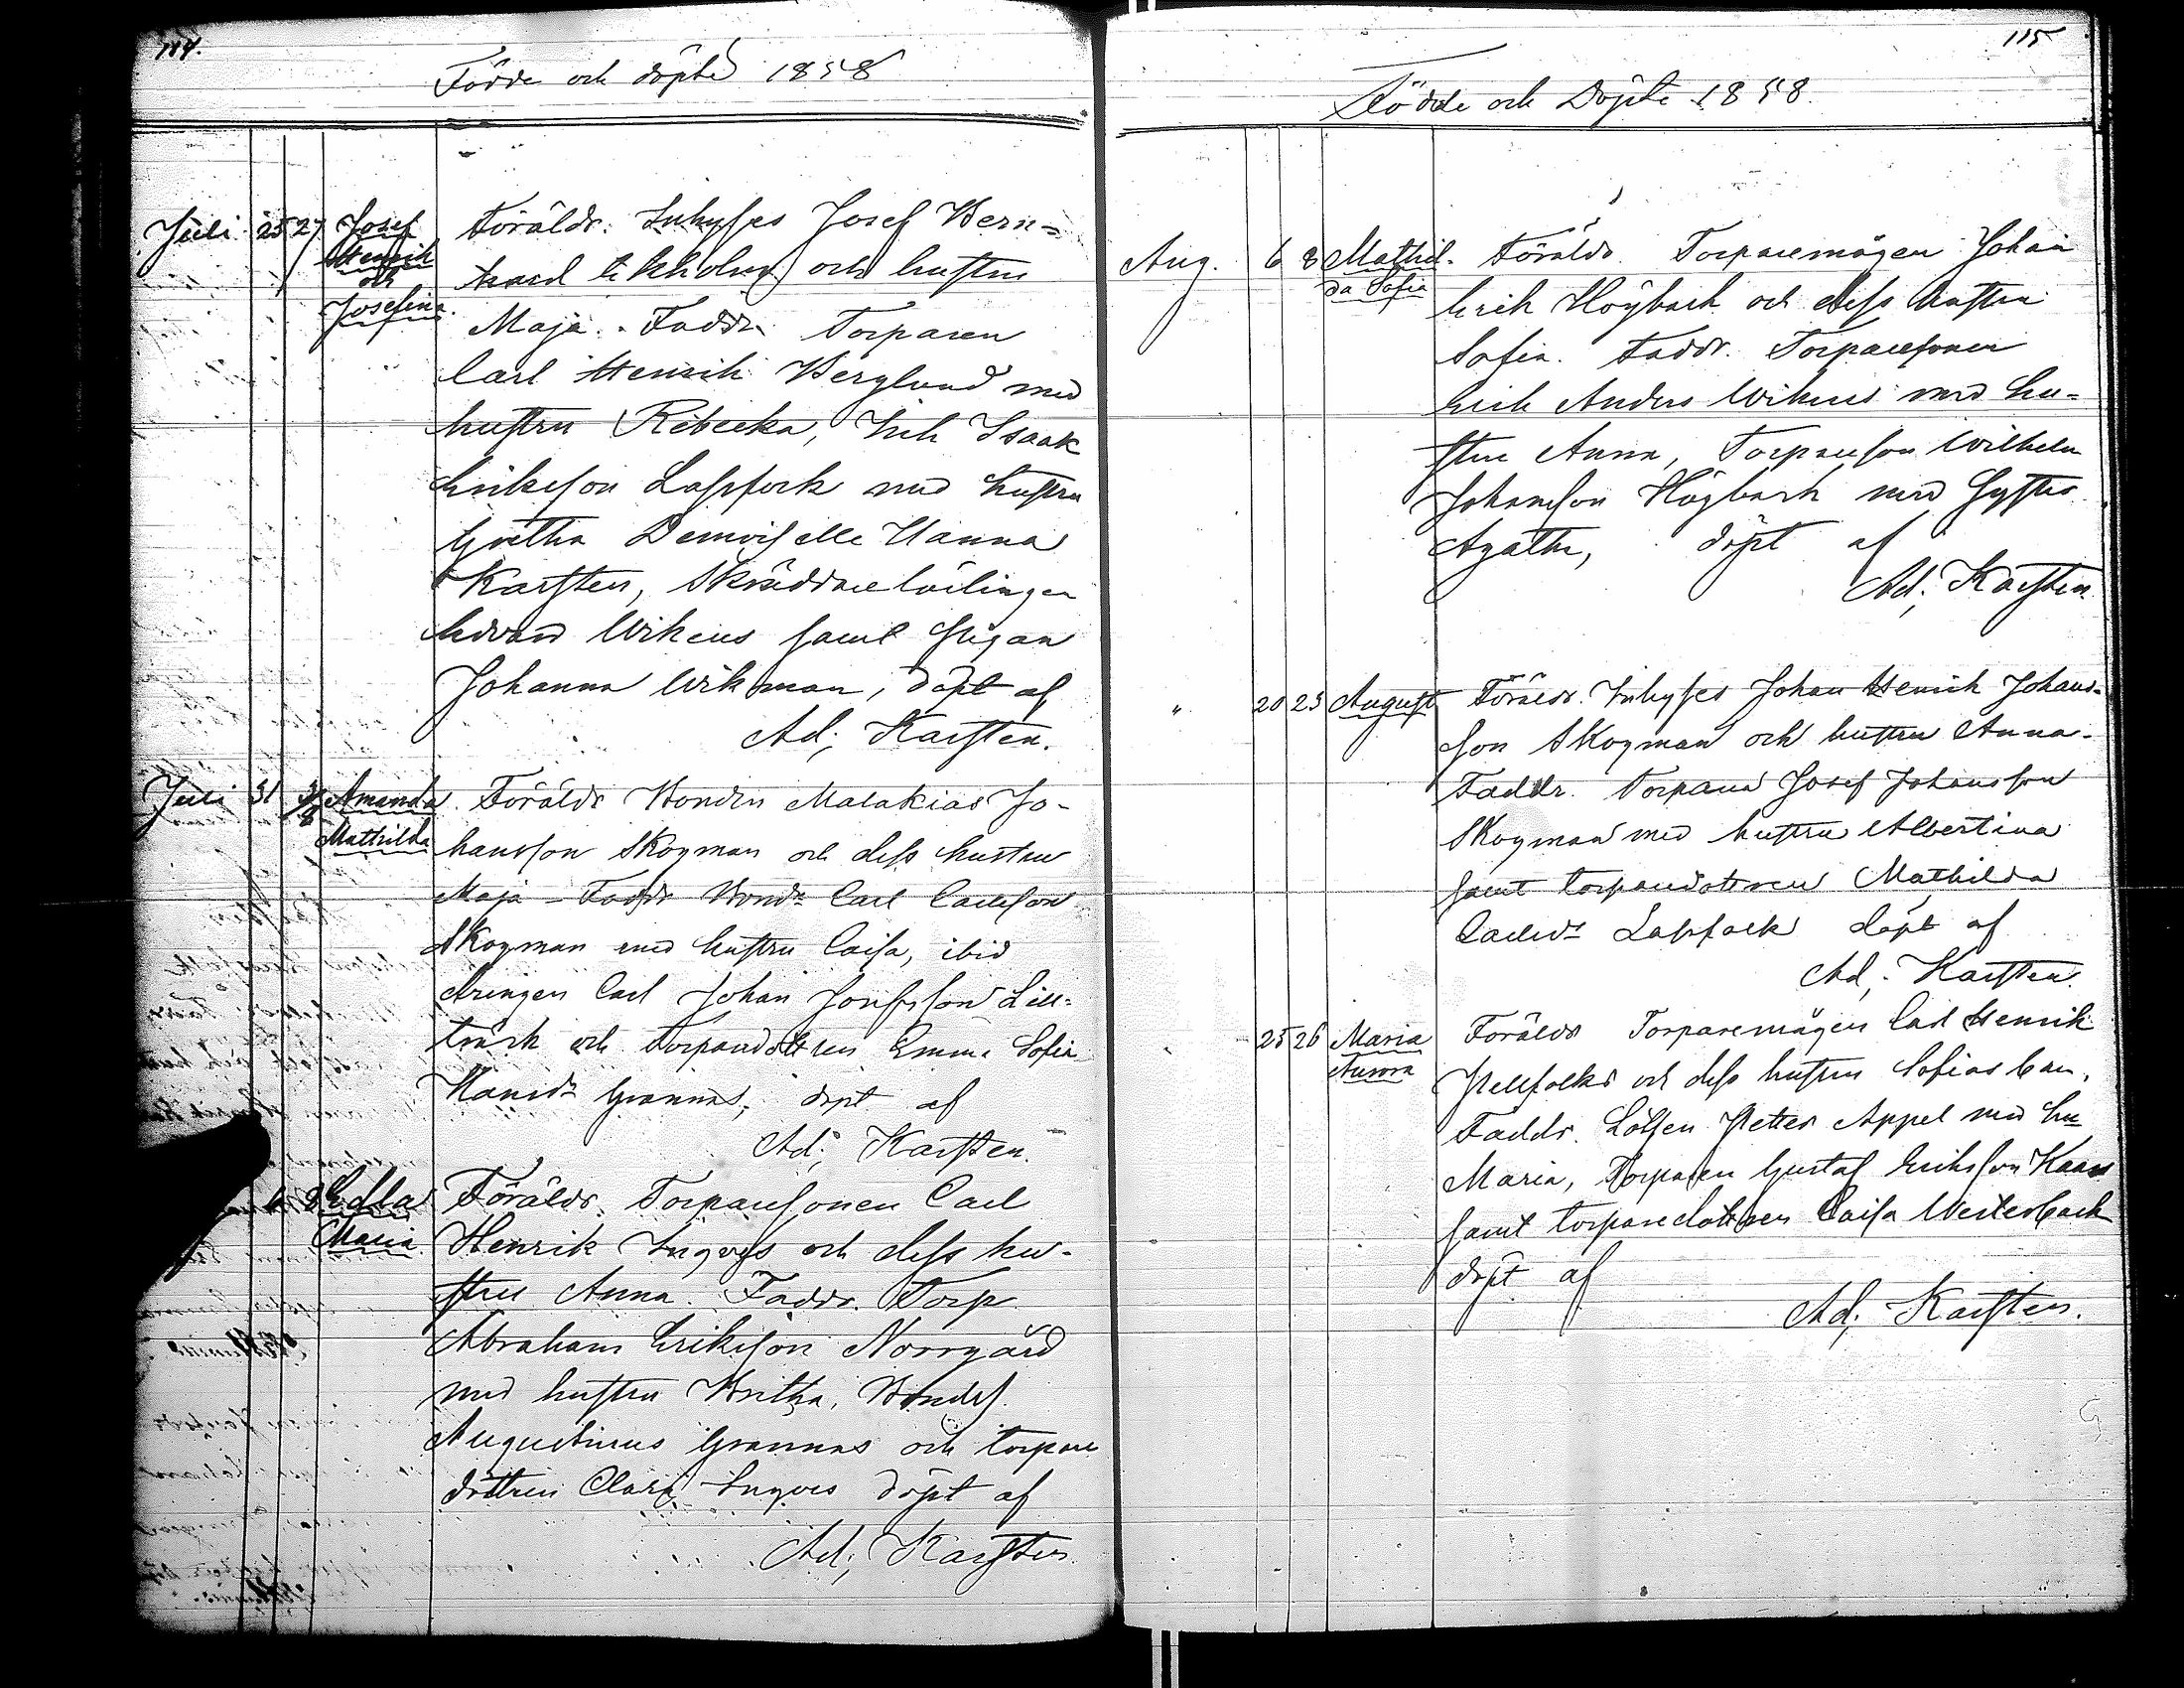 114.
Födde och döpte 1858
Juli 25 27 Josef Henrik och Josefina.
Föräldr. Inhyses Josef Bern=
hard Ekholm och hustru
Maja. Faddr. Torparen
Carl Henrik Berglund med
hustru Rebecka, Inh Isaak
Eriksson Lassfolk med hustru
Gretha Demoiselle Hanna
Karsten, Skräddarelärlingen
Edvard Wikens samt Pigan
Johanna Wikman, döpt af
Ad; Karsten.
Juli 31 Amanda Mathilda
Föräldr Bonden Malakias Jo-
hansson Skogman och dess hustru
Maja - Faddr Bond. Carl Carlsson
Skogman med hustru Caisa, ibid
drengen Carl Johan Josefsson Lill=
träsk och Torpardottren Emma Sofia
Hansdr Grannas, döpt af
Ad; Karsten.
6 8 Edla Maria
Föräldr. Torparesonen Carl
Henrik Ingves och dess hu-
stru Anna. Faddr. Torp.
Abraham Eriksson Norrgård
med hustru Britha, Bondes.
Augustinus Grannas och torpare
dottren Clara Ingves döpt af
Ad; Karsten.
115
Födde och Döpte 1858.
Aug. 6 8 Mathil-da Sofia
Föräldr. Torparemågen Johan
Erik Högback och dess hustru
Sofia. Faddr. Torparesonen
Erik Anders Wikens med hu=
stru Anna, Torpareson Wilhelm
Johansson Högback med Syster
Agatha, döpt af
Ad; Karsten
" 20 23 August
Föräldr. Inhyses Johan Henrik Johans-
son Skogman och hustru Anna-
Faddr. Torparen Josef Johansson
Skogman med hustru Albertina
samt torparedottren Mathilda
Carlsdr Lassfolk döpt af
Ad; Karsten.
25 26 Maria Aurora
Föräldr Torparemågen Carl Henrik
och dess hustru Sofias barn,
Faddr. Lotsen Petter Appel med hu
Maria, Torparen Gustaf Eriksson
samt torparedottren Caisa Westerback
döpt af
Ad; Karsten.